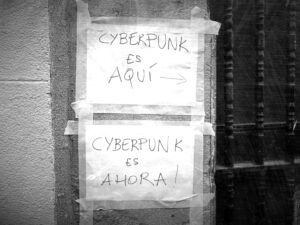 CYBERPUNK
ES
AQUÍ →
CYBERPUNK
ES
AHORA!